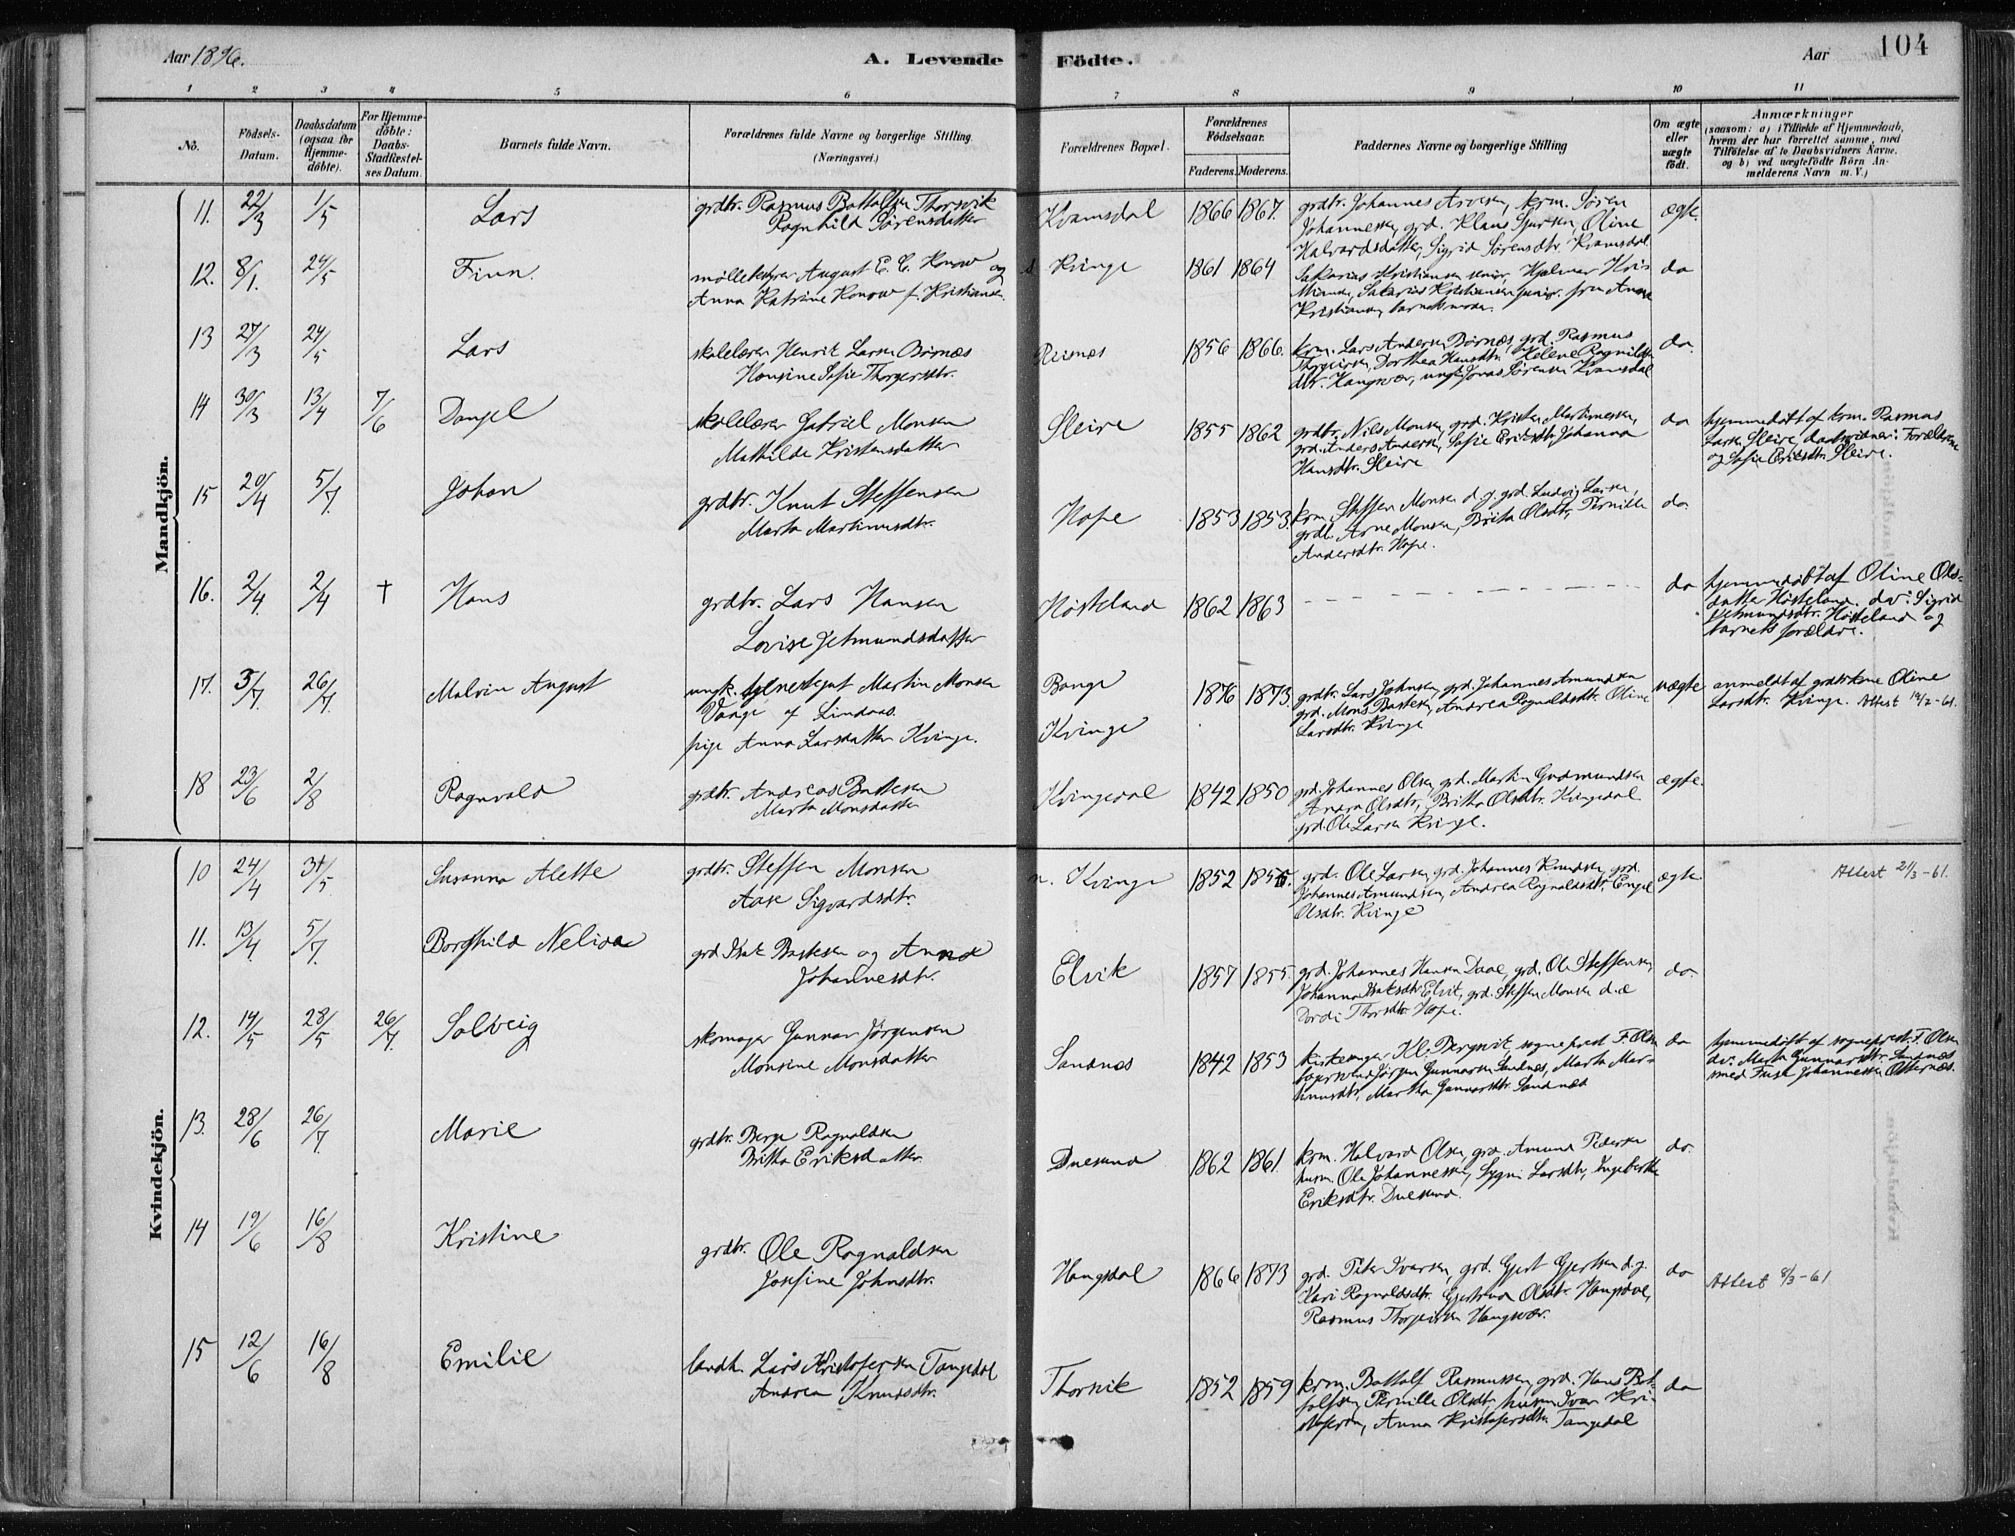 Aar 1896.
A. Levende
Födte.
Aar
104
1 2 3 4 5 6 7 8 9 10 11
No.
Födsels-Datum.
Daabsdatum (ogsaa for Hjemmedöbte).
For Hjemmedöbte: Daabs-Stadfæstelses Datum.
Barnets fulde Navn.
Forældrenes fulde Navne og borgerlige Stilling
(Næringsvei.)
Forældrenes Bopæl.
Forældrenes Födselsaar.
Faderens. Moderens.
Faddernes Navne og borgerlige Stilling
Om ægte eller uægte födt.
Anmærkninger
(saasom: a) i Tilfælde af Hjemmedaab, hvem der har forrettet samme, med Tilföielse af to Daabsvidners Navne, og b) ved uægtefödte Börn Anmelderens Navn m. V.)
Mandkjön.
11. 22/3 1/5 Lars
grdbr. Rasmus Battolfsen Thorsvik
Ragnhild Sørensdatter
Kvamsdal 1866 1867.
grdbr. Johannes Arvesen, krm. Søren
Johannessen, grd. Klaus Sjursen, Oline
Halvardsdatter, Sigrid Sørensdtr. Kvamsdal
ægte.
12. 8/1. 24/5 Finn.
møllebestyrer August E. C. Konow og
Anna Katrine Konow f. Kristiansen.
Kvinge 1861 1864
Sakarias Kristiansen senior, Hjalmar
Sakarias Kristiansen junior. fru Anna
Kristiansen, barnets moder.
do
13 27/3 24/5 Lars
skolelærer Henrik Larsen Børnæs
Hansine Sofie Thorgersdtr.
Reisnes 1856 1866.
krm. Lars Andersen Børnæs, grd. Rasmus
Thorgersen, Dorthea Hansdtr. Helene Ragnilds
dtr. Haugsvær, ungk. Jonas Sørensen Kvamsdal
do.
14 30/3 13/4 7/6 Danjel
skolelærer Gabriel Monsen
Mathilde Kristensdatter
Sleire 1855 1862
grdbr. Nils Monsen, grd. Kristen Martinessen,
grd. Anders Andersen, Sofie Eriksdtr, Johanna
Hansdtr. Sleire
do
hjemmedøbt af krm. Rasmus
Larsen Sleire, daabsvidner: Forældrene
og Sofie Eriksdtr. Sleire.
15 20/4 5/7. Johan
grdbr. Knut Steffensen
Marta Martinusdtr.
Hope 1853 1853.
krm. Steffen Monsen d.y. grd. Ludvig Larsen,
grdb. Arne Monsen, Brita Olsdtr, Pernille
Andersdtr. Hope.
do.
16. 2/4 2/4 † Hans
grdbr. Lars Hansen
Lovise Jetmundsdatter
Høsteland 1862 1863
do
hjemmedøbt af Oline Ols-
datter Høsteland. dv: Sigrid
Jetmundsdtr. Høsteland og
barnets forældre.
17. 3/7 26/7. Malvin August
ungk. tjenestegut Martin Monsen
Vange af Lindaas.
pige Anna Larsdatter Kvinge.
Kvinge
1876 1873.
grdbr. Lars Johnsen, grd. Johannes Amundsen
grd. Mons Bastesen, Andrea Ragnaldsdtr. Oline
Larsdtr. Kvinge
uægte
anmeldt af grdbrkone Oline
Larsdtr. Kvinge. Attest 14/2-61.
18 23/6 2/8 Ragnvald
grdbr. Andreas Bastesen
Marta Monsdatter
Kvingedal 1842 1850
grd. Johannes Olsen, grd. Martin Gudmundsen
Anna Olsdtr, Britha Olsdtr. Kvingedal.
grd. Ole Larsen Kvinge.
ægte.
Kvindekjön.
10 24/4 31/5 Susanna Alette
grdbr. Steffen Monsen
Aase Sigvardsdtr.
n. Kvinge 1852 1855.
grd. Ole Larsen, grd. Johannes Knudsen, grd.
Johannes Amundsen, Andrea Ragnaldsdtr, Engel
Olsdtr. Kvinge
ægte.
Attest 21/3-61.
11. 13/4 5/7. Borghild Nelida
grd Isak Bastesen og Anna
Johannesdtr.
Elvik 1857 1855.
grd. Johannes Hansen Daae, grd. Ole Steffensen,
Johanna Isaksdtr Elvik, grd. Steffen Monsen d.æ
Dordi Thorsdtr. Hope.
do.
12. 14/5 28/5 26/7. Solveig
skomager Gunnar Jørgensen
Monsine Monsdatter
Sandnæs 1842 1853
kirkesanger Kl. Bergsvik, sogneprest F. Olsen
Jørgen Gunnarsen Sandnæs, Marta Mar-
tinusdtr, Martha Gunnarsdtr. Sandnæs
do
hjemmedøbt af sogneprest F. Olsen
dv: Marta Gunnarsdtr. Sandnæs
Johannessen
13. 28/6 26/7 Marie
grdbr. Berge Ragnaldsen
Britha Eriksdatter
Duesund 1862 1861.
krm. Halvard Olsen, grd. Amund Pedersen
husm. Ole Johannessen, Sygni Larsdtr, Ingeborg
Eriksdtr. Duesund.
do.
14 19/6 16/8 Kristine
grdbr. Ole Ragnaldsen
Josefine Johnsdtr.
Haugsdal 1866 1873
grd. Peter Ivarsen, grd. Gjert Gjertsen d.y.
Kari Ragnaldsdtr. Gjertrud Olsdtr. Haugsdal,
Rasmus Thorgersen Haugsvær.
do
Attest 8/3-61
15 12/6 16/8 Emilie
landh. Lars Kristofersen Tangedal
Andrea Knudsdtr.
Thorsvik 1852 1859
krm. Battolf Rasmussen, grd. Hans Bat-
tolfsen, Pernille Olsdtr, husm. Ivar Kri-
stofersen, Anna Kristofersdtr Tangedal
do